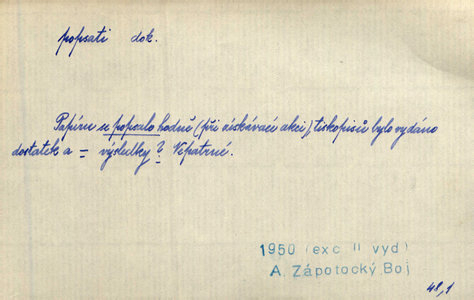 popsati dok.
Papíru se popsalo hodně (při získávací akci,) tiskopisů bylo vydáno
dostatek a = výsledky? Nepatrné.
1950 (exc II vyd)
A. Zápotocký, Boj
48,1